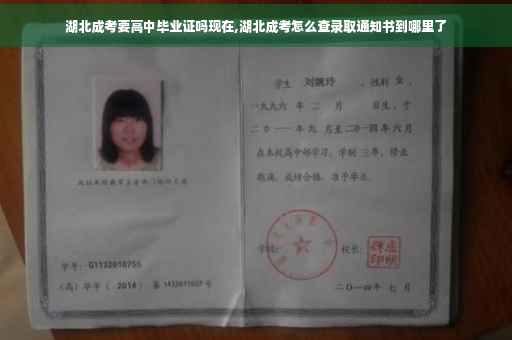 湖北成考要高中毕业证吗现在,湖北成考怎么查录取通知书到哪里了
学生 刘婉玲 ，性别 女 ，
一九九六 年 二 月 日生，于
二〇一一年九 月至二〇一四年 六 月
在本校高中部学习，学制 三年，修业
期满，成绩合格，准予毕业。
学号： G1132010755
学校： 校长：
(高) 毕字 ( 2014 ) 第 1432011027 号
二〇一四年 七 月